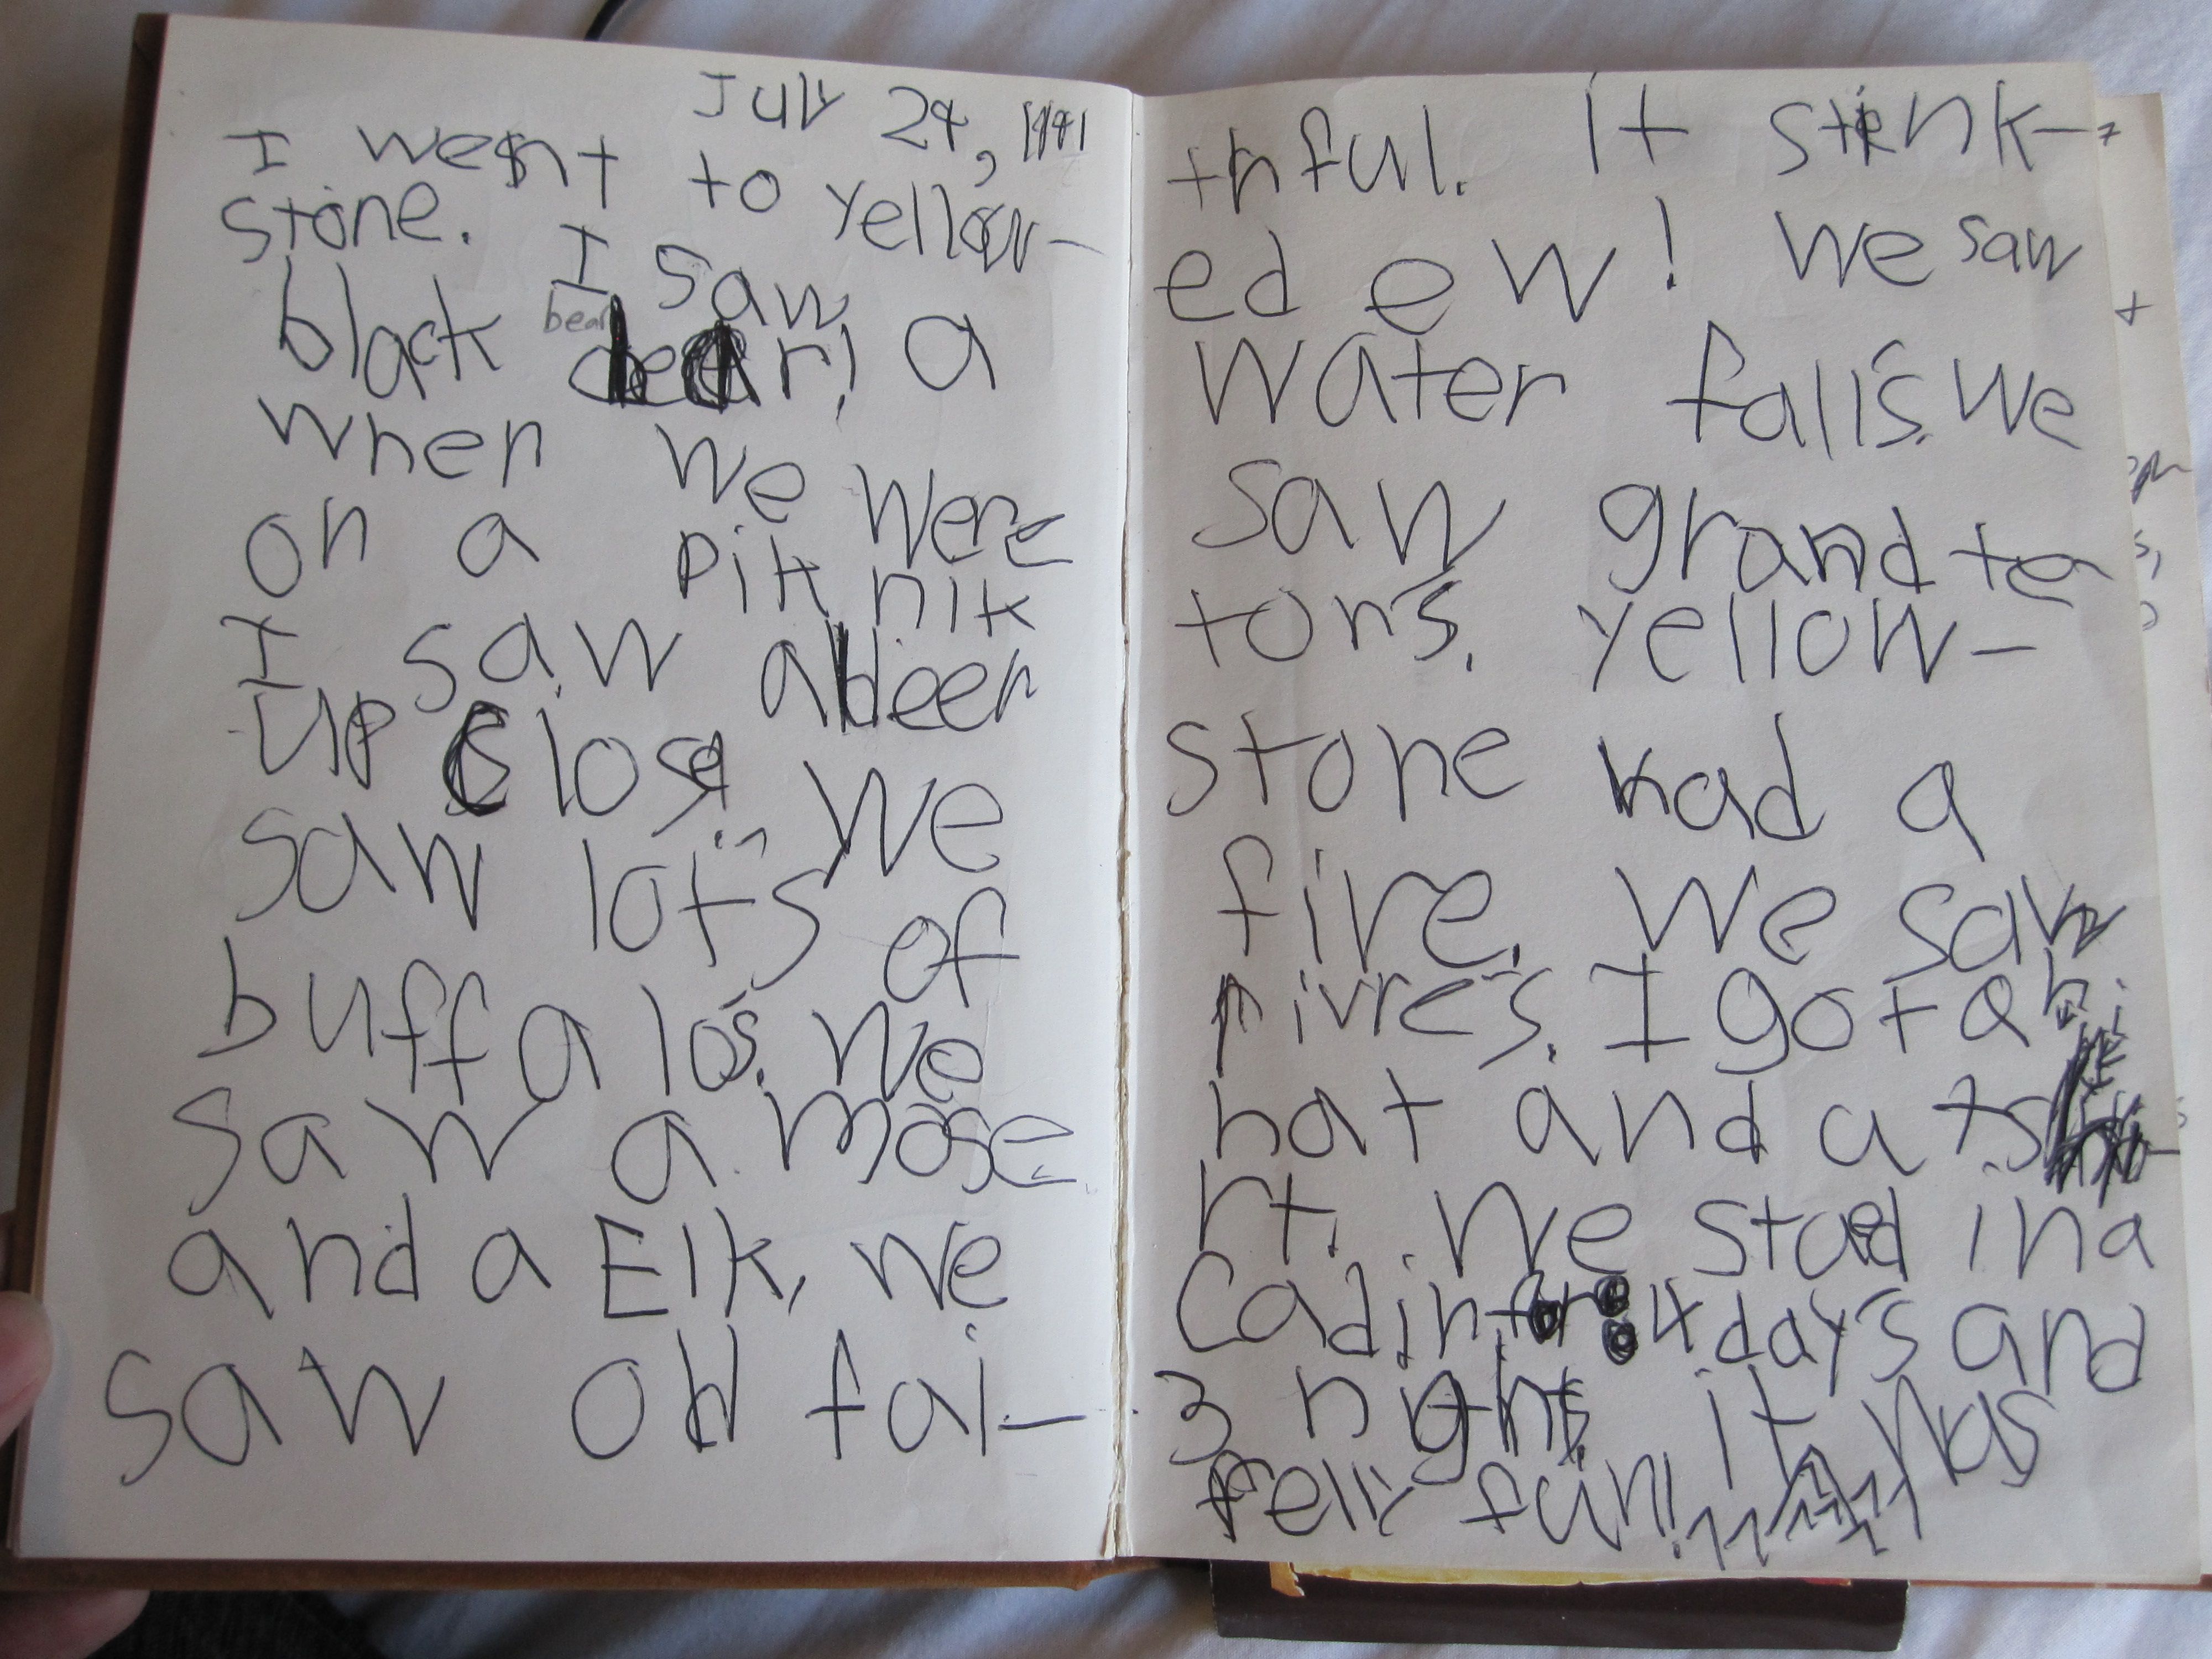 July 24, 1991
I went to yellow-
stone. I saw a
black bear bear!
when we were
on a pik nik
I saw a deer
up close. We
saw lots of
buffalo's. We
saw a mose
and a Elk, We
saw old fai-
thful. It stink-
ed ew! We saw
water fall's. We
saw grand te
ton's. yellow-
stone had a
fire. We saw
rivre's. I got a
hat and a tshi-
rt. We staed in a
Cadin for 4 day's and
3 night's. it was
relly fun!